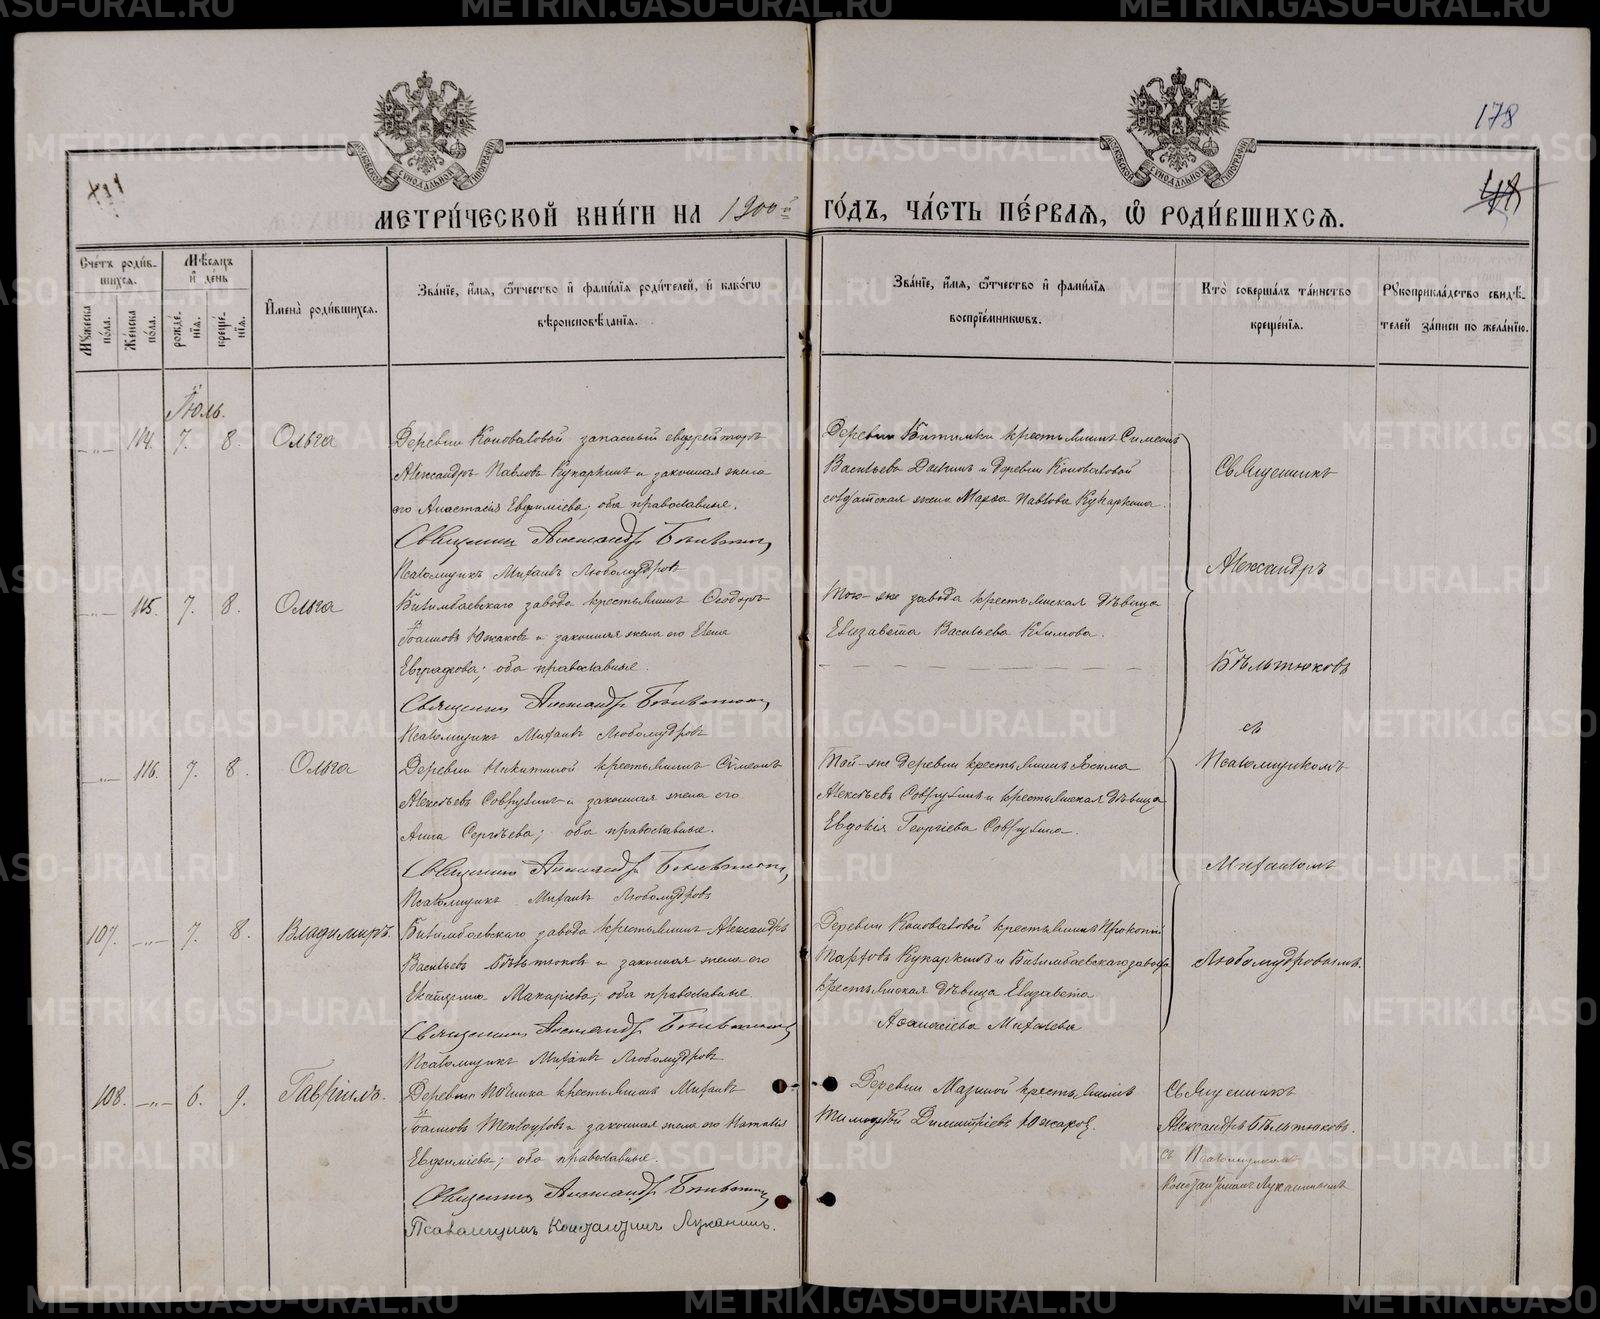 178
МЕТРИ́ЧЕСКОЙ КНИ́ГИ НА 1900й ГО́ДЪ, ЧА́СТЬ ПЕ́РВАЯ, Ѽ РОДИ́ВШИХСЯ.
Сче́тъ роди́в-
шихся.
Му́жеска по́ла.
Же́нска по́ла.
Мѣ́сяцъ и де́нь
рожде́нїя.
креще́нїя.
И҆мена̀ роди́вшихся.
Зва́нїе, и҆́мя, ѻ҆́тчество и҆ фами́лїя роди́телей, и҆ како́гѡ
вѣроисповѣ́данїя.
Зва́нїе, и҆́мя, ѻ҆́тчество и҆ фами́лїя
воспрїе́мникѡвъ.
Кто̀ соверша́лъ та́инство
креще́нїя.
Рукоприкла́дство свидѣ́-
телей за́писи по жела́нїю.
Іюль.
114. 7. 8. Ольга
Деревни Коноваловой запасный ефрейторъ
Александръ Павловъ Кукаркинъ и законная жена
его Анастасія Евфиміева; оба православные.
Священникъ Александръ Бѣльтюковъ
Псаломщикъ Михаилъ Любомудровъ
Деревни Битимки крестьянинъ Симеонъ
Васильевъ и деревни Коноваловой
солдатская жена Марѳа Павлова Кукаркина.
115. 7. 8. Ольга
Билимбаевскаго завода крестьянинъ Ѳеодоръ
Іоанновъ Южаковъ и законная жена его Елена
Евграфова; оба православные.
Священникъ Александръ Бѣльтюковъ
Псаломщикъ Михаилъ Любомудровъ
Того-же завода крестьянская дѣвица
Елизавета Васильева Климова.
116. 7. 8. Ольга
Деревни Никитиной крестьянинъ Симеонъ
Алексѣевъ и законная жена его
Анна Сергѣева; оба православные.
Священникъ Александръ Бѣльтюковъ
Псаломщикъ Михаилъ Любомудровъ
Той-же деревни крестьянинъ
Алексѣевъ и крестьянская дѣвица
Евдокія Георгіева
107. 7. 8. Владимиръ.
Билимбаевскаго завода крестьянинъ Александръ
Васильевъ Бѣльтюковъ и законная жена его
Екатерина Макаріева; оба православные.
Священникъ Александръ Бѣльтюковъ
Псаломщикъ Михаилъ Любомудровъ
Деревни Коноваловой крестьянинъ Прокопій
Кукаркинъ и Билимбаевскаго завода
крестьянская дѣвица Елизавета
Аѳанасіева Михалева
Священникъ
Александръ
Бѣльтюковъ
съ
Псаломщикомъ
Михаиломъ
Любомудровымъ.
108. 6. 9. Гавріилъ.
Деревни Починка крестьянинъ Михаилъ
Іоанновъ и законная жена его Наталія
Евфиміева; оба православные.
Священникъ Александръ Бѣльтюковъ
Псаломщикъ Константинъ Луканинъ.
Деревни Мазиной крестьянинъ
Тимоѳей Димитріевъ Южаковъ.
Священникъ
Александръ Бѣльтюковъ.
съ Псаломщикомъ
Константиномъ Луканинымъ